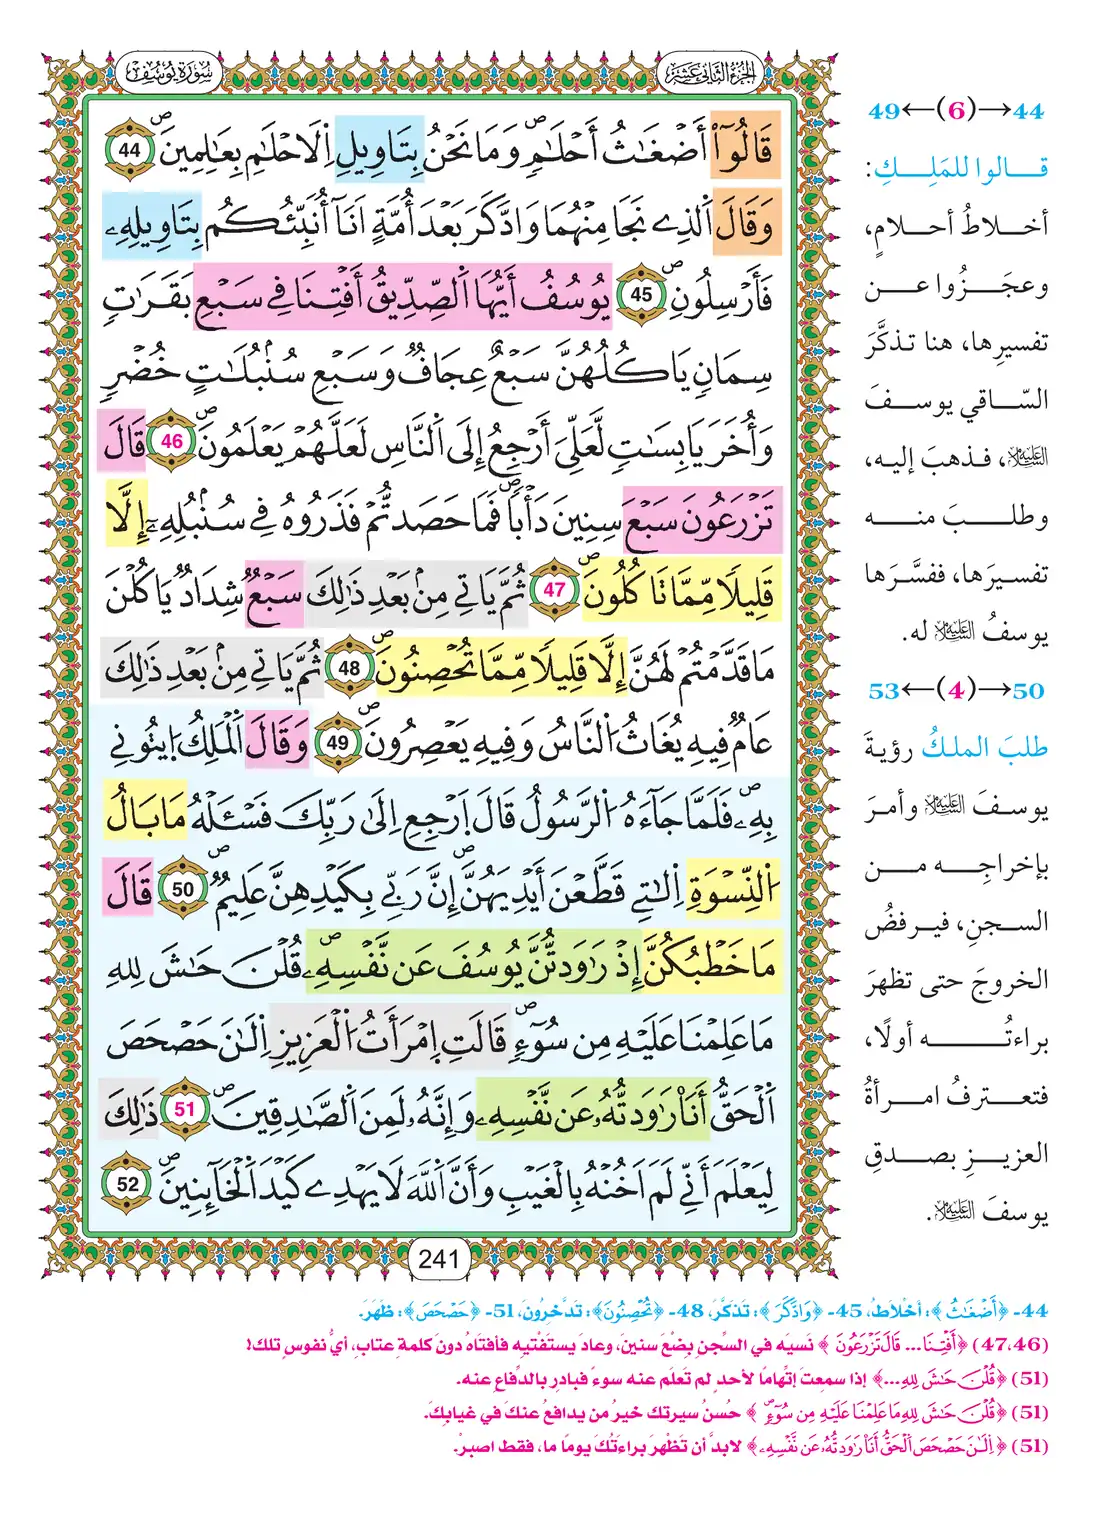 الجزء الثاني عشر
سورة يوسف
قَالُوٓاْ أَضۡغَٰثُ أَحۡلَٰمٖۖ وَمَا نَحۡنُ بِتَاوِيلِ اِ۬لَاحۡلَٰمِ بِعَٰلِمِينَۖ 44
وَقَالَ اَ۬لذِے نَجَا مِنۡهُمَا وَادَّكَرَ بَعۡدَ أُمَّةٍ اَنَآ أُنَبِّئُكُم بِتَاوِيلِهِۦ
فَأَرۡسِلُونِۖ 45 يُوسُفُ أَيُّهَا اَ۬لصِّدِّيقُ أَفۡتِنَا فِے سَبۡعِ بَقَرَٰتٖ
سِمَانٖ يَاكُلُهُنَّ سَبۡعٌ عِجَافٞ وَسَبۡعِ سُنۢبُلَٰتٍ خُضۡرٖ
وَأُخَرَ يَابِسَٰتٖ لَّعَلِّيَ أَرۡجِعُ إِلَى اَ۬لنَّاسِ لَعَلَّهُمۡ يَعۡلَمُونَۖ 46 قَالَ
تَزۡرَعُونَ سَبۡعَ سِنِينَ دَأۡباٗۖ فَمَا حَصَدتُّمۡ فَذَرُوهُ فِے سُنۢبُلِهِۦٓ إِلَّا
قَلِيلٗا مِّمَّا تَاكُلُونَۖ 47 ثُمَّ يَاتِے مِنۢ بَعۡدِ ذَٰلِكَ سَبۡعٞ شِدَادٞ يَاكُلۡنَ
مَا قَدَّمۡتُمۡ لَهُنَّ إِلَّا قَلِيلٗا مِّمَّا تُحۡصِنُونَۖ 48 ثُمَّ يَاتِے مِنۢ بَعۡدِ ذَٰلِكَ
عَامٞ فِيهِ يُغَاثُ اُ۬لنَّاسُ وَفِيهِ يَعۡصِرُونَۖ 49 وَقَالَ اَ۬لۡمَلِكُ اُ۪يتُونِے
بِهِۦۖ فَلَمَّا جَآءَهُ اُ۬لرَّسُولُ قَالَ اَ۪رۡجِعِ اِلَىٰ رَبِّكَ فَسۡـَٔلۡهُ مَا بَالُ
اُ۬لنِّسۡوَةِ اِ۬لَٰتِے قَطَّعۡنَ أَيۡدِيَهُنَّۖ إِنَّ رَبِّے بِكَيۡدِهِنَّ عَلِيمٞۖ 50 قَالَ
مَا خَطۡبُكُنَّ إِذۡ رَٰوَدتُّنَّ يُوسُفَ عَن نَّفۡسِهِۦۖ قُلۡنَ حَٰشَ لِلهِ
مَا عَلِمۡنَا عَلَيۡهِ مِن سُوٓءٖۖ قَالَتِ اِ۪مۡرَأَتُ اُ۬لۡعَزِيزِ اِ۬لَٰنَ حَصۡحَصَ
اَ۬لۡحَقُّ أَنَا رَٰوَدتُّهُۥ عَن نَّفۡسِهِۦ وَإِنَّهُۥ لَمِنَ اَ۬لصَّٰدِقِينَۖ 51 ذَٰلِكَ
لِيَعۡلَمَ أَنِّے لَمَ اَخُنۡهُ بِالۡغَيۡبِ وَأَنَّ اَ۬للَّهَ لَا يَهۡدِے كَيۡدَ اَ۬لۡخَآئِنِينَۖ 52
241
44→(6)←49
قالوا للمَلِكِ:
أخلاطُ أحلامٍ،
وعجَزُوا عن
تفسيرِها، هنا تذكَّرَ
السّاقي يوسفَ
عليه السلام، فذهبَ إليه،
وطلبَ منه
تفسيرَها، ففسَّرَها
يوسفُ عليه السلام له.
50→(4)←53
طلبَ الملكُ رؤيةَ
يوسفَ عليه السلام وأمرَ
بإخراجِه من
السجنِ، فيرفضُ
الخروجَ حتى تظهرَ
براءتُه أولًا،
فتعترفُ امرأةُ
العزيزِ بصدقِ
يوسفَ عليه السلام.
44- ﴿أَضۡغَٰثُ﴾: أخْلَاطُ، 45- ﴿وَادَّكَرَ﴾: تَذَكَّرَ، 48- ﴿تُحۡصِنُونَ﴾: تَدَّخِرُونَ، 51- ﴿حَصۡحَصَ﴾: ظَهَرَ.
(47،46) ﴿أَفۡتِنَا... قَالَ تَزۡرَعُونَ﴾ نَسيَه في السِّجنِ بِضْعَ سنينَ، وعادَ يستَفْتيه فأفتَاهُ دونَ كلمةِ عتابٍ، أيُّ نفوسٍ تلك!
(51) ﴿قُلۡنَ حَٰشَ لِلهِ...﴾ إذا سمعتَ إتِّهامًا لأحدٍ لم تَعلَم عنه سوءً فبادِر بالدِّفاعِ عنه.
(51) ﴿قُلۡنَ حَٰشَ لِلهِ مَا عَلِمۡنَا عَلَيۡهِ مِن سُوٓءٖۖ﴾ حُسنُ سيرتِك خيرُ من يدافعُ عنكَ في غيابِكَ.
(51) ﴿اِ۬لَٰنَ حَصۡحَصَ اَ۬لۡحَقُّ أَنَا رَٰوَدتُّهُۥ عَن نَّفۡسِهِۦ﴾ لابدَّ أن تَظْهرَ براءَتُكَ يومًا ما، فقط اصبرْ.